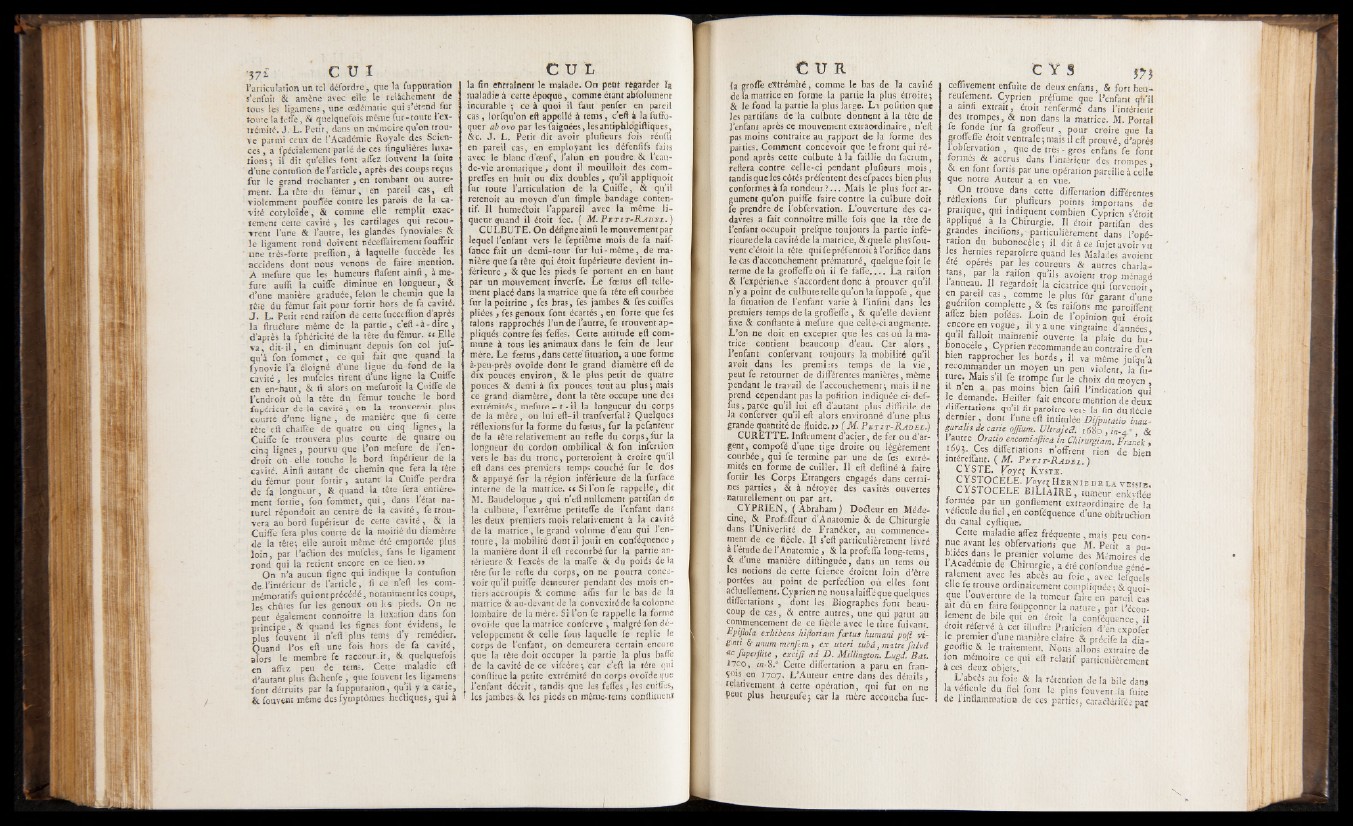 372 CUI
l'articulation un tel déſordre, que la ſuppuration
s'enſuit & amène avec elle le relâchement de
tous les ligamens, une œdématie qui s'étend ſur
toute la feſſe, & quelquefois même ſur-toute l'ex-
trémité. J. L. Petit, dans un mémoire qu'on trou-
ve parmi ceux de l'Académie Royale des Scien-
ces, a ſpécialement parlé de ces ſingulières luxa-
tions; il dit qu'elles ſont aſſez ſouvent la ſuite
d'une contuſion de l'article, après des coups reçus
ſur le grand trochanter, en tombant ou autre-
ment. La tête du fémur, en pareil cas, eſt
violemment pouſſée contre les parois de la ca-
vité cotyloïde, & comme elle remplit exac-
tement cette cavité, les cartilages qui recou-
vrent l'une & l'autre, les glandes ſynoviales &
le ligament rond doivent néceſſairement ſouffrir
une très-forte preſſion, à laquelle ſuccède les
accidens dont nous venons de faire mention.
A meſure que les humeurs fluſent ainſi, à me-
ſure auſſi la cuiſſe diminue en longueur, &
d'une manière graduée, ſelon le chemin que la
tête du fémur fait pour ſortir hors de ſa cavité.
J. L. Petit rend raiſon de cette ſucceſſion d'après
la ſtructure même de la partie, c'eſt-à-dire,
d'après la ſphéricité de la tête du fémur. « Elle
va, dit-il, en diminuant depuis ſon col juſ-
qu'à ſon ſommet, ce qui fait que quand la
ſynovie l'a éloigné d'une ligue du fond de la
cavité, les muſcles tirent d'une ligne la Cuiſſe
en en-haut, & ſi alors on meſuroit la Cuiſſe de
l'endroit où la tête du fémur touche le bord
ſupérieur de la cavité, on la trouveroit plus
courte d'une ligne, de manière que ſi cette
tête eſt chaſſée de quatre ou cinq lignes, la
Cuiſſe ſe trouvera plus courte de quatre ou
cinq lignes, pourvu que l'on meſure de l'en-
droit où elle touche le bord ſupérieur de la
cavité. Ainſi autant de chemin que fera la tête
du fémur pour ſortir, autant la Cuiſſe perdra
de ſa longueur, & quand la tête ſera entière-
ment ſortie, ſon ſommet, qui, dans l'état na-
turel répondoit au centre de la cavité, ſe trou-
vera au bord ſupérieur de cette cavité, & la
Cuiſſe ſera plus courte de la moitié du diamètre
de la tête; elle auroit même été emportée plus
loin, par l'action des muſcles, ſans le ligament
rond qui la retient encore en ce lieu. »
On n'a aucun ſigne qui indique la contuſion
de l'intérieur de l'article, ſi ce n'eſt les com-
mémoratifs qui ont précédé, notamment les coups,
les chûtes ſur les genoux ou les pieds. On ne
peut également connoître la luxation dans ſon
principe, & quand les ſignes ſont évidens, le
plus ſouvent il n'eſt plus tems d'y remédier.
Quand l'os eſt une fois hors de ſa cavité,
alors le membre ſe raccourcit, & quelquefois
en aſſez peu de tems. Cette maladie eſt
d'autant plus fâcheuſe, que ſouvent les ligamens
ſont détruits par la ſuppuration, qu'il y a carie,
& ſouvent même des ſymptômes hectiques, qui à
CUL
la fin entraînent le malade. On peut regarder la
maladie à cette époque, comme étant abſolument
incurable; ce à quoi il faut penſer en pareil
cas, lorſqu'on eſt appellé à tems, c'eſt à la ſuffo-
quer ab ovo par les ſaignées, les antiphlogiſtiques,
&c. J. L. Petit dit avoir pluſieurs fois réuſſi
en pareil cas, en employant les défenſifs faits
avec le blanc d'œuf, l'alun en poudre & l'eau-
de-vie aromatique, dont il mouilloit des com-
preſſes en huit ou dix doubles, qu'il appliquoit
ſur toute l'articulation de la Cuiſſe, & qu'il
retenoit au moyen d'un ſimple bandage conten-
tif. Il humectoit l'appareil avec la même li-
queur quand il étoit ſec. (M. PETIT-RADEL.)
CULBUTE. On déſigne ainſi le mouvement par
lequel l'enfant vers le ſeptième mois de ſa naiſ-
ſance fait un demi-tour ſur lui-même, de ma-
nière que ſa tête qui étoit ſupérieure devient in-
férieure, & que les pieds ſe portent en en haut
par un mouvement inverſe. Le fœtus eſt telle-
ment placé dans la matrice que ſa tête eſt courbée
ſur la poitrine, ſes bras, ſes jambes & ſes cuiſſes
pliées, ſes genoux ſont écartés, en ſorte que ſes
talons rapprochés l'un de l'autre, ſe trouvent ap-
pliqués contre ſes feſſes. Cette attitude eſt com-
mune à tous les animaux dans le ſein de leur
mère. Le fœtus, dans cette ſituation, a une forme
à-peu-près ovoïde dont le grand diamètre eſt de
dix pouces environ, & le plus petit de quatre
pouces & demi à ſix pouces tout au plus; mais
ce grand diamètre, dont la tête occupe une des
extrémités, meſure-t-il la longueur du corps
de la mère, ou lui eſt-il tranſverſal? Quelques
réflexions ſur la forme du fœtus, ſur la peſanteur
de la tête relativement au reſte du corps, ſur la
longueur du cordon ombilical & ſon inſertion
vers le bas du tronc, porteroient à croire qu'il
eſt dans ces premiers temps couché ſur le dos
& appuyé ſur la région inférieure de la ſurface
interne de la matrice. « Si l'on ſe rappelle, dit
M. Baudeloque, qui n'eſt nullement partiſan de
la culbute, l'extrême petiteſſe de l'enfant dans
les deux premiers mois relativement à la cavité
de la matrice, le grand volume d'eau qui l'en-
toure, la mobilité dont il jouit en conſéquence,
la manière dont il eſt recourbé ſur ſa partie an-
térieure & l'excès de la maſſe & du poids de la
tête ſur le reſte du corps, on ne pourra conce-
voir qu'il puiſſe demeurer pendant des mois en-
tiers accroupis & comme aſſis ſur le bas de la
matrice & au-devant de la convexité de la colonne
lombaire de la mère. Si l'on ſe rappelle la forme
ovoïde que la matrice conſerve, malgré ſon dé-
veloppement & celle ſous laquelle ſe replie le
corps de l'enfant, on demeurera certain encore
que la tête doit occuper la partie la plus baſſe
de la cavité de ce viſcère; car c'eſt la tête qui
conſtitue la petite extrémité du corps ovoïde que
l'enfant décrit, tandis que les feſſes, les cuiſſes,
les jambes & les pieds en même-tems conſtituent
CUR
la groſſe extrémité, comme le bas de la cavité
de la matrice en forme la partie la plus étroite;
& le fond la partie la plus large. La poſition que
les partiſans de la culbute donnent à la tête de
l'enfant après ce mouvement extraordinaire, n'eſt
pas moins contraire au rapport de la forme des
parties. Comment concevoir que le front qui ré-
pond après cette culbute à la ſaillie du ſacrum,
reſtera contre celle-ci pendant pluſieurs mois,
tandis que les côtés préſentent des eſpaces bien plus
conformes à ſa rondeur?... Mais le plus fort ar-
gument qu'on puiſſe faire contre la culbute doit
ſe prendre de l'obſervation. L'ouverture des ca-
davres a fait connoître mille fois que la tête de
l'enfant occupoit preſque toujours la partie infé-
rieure de la cavité de la matrice, & que le plus ſou-
vent c'étoit la tête qui ſe préſentoit à l'orifice dans
le cas d'accouchement prématuré, quelque ſoit le
terme de la groſſeſſe où il ſe faſſe.... La raiſon
& l'expérience s'accordent donc à prouver qu'il
n'y a point de culbute telle qu'on la ſuppoſe, que
la ſituation de l'enfant varie à l'infini dans les
premiers temps de la groſſeſſe, & qu'elle devient
fixe & conſtante à meſure que celle-ci augmente.
L'on ne doit en excepter que les cas où la ma-
trice contient beaucoup d'eau. Car alors,
l'enfant conſervant toujours la mobilité qu'il
avoit dans les premiers temps de la vie,
peut ſe retourner de différences manières, même
pendant le travail de l'accouchement; mais il ne
prend cependant pas la poſition indiquée ci-deſ-
ſus, parce qu'il lui eſt d'autant plus difficile de
la conſerver qu'il eſt alors environné d'une plus
grande quantité de fluide. » (M. PETIT-RADEL.)
CURETTE. Inſtrument d'acier, de fer ou d'ar-
gent, compoſé d'une tige droite ou légèrement
courbée, qui ſe termine par une de ſes extré-
mités en forme de cuiller. Il eſt deſtiné à faire
ſortir les Corps Etrangers engagés dans certai-
nes parties, & à nétoyer des cavités ouvertes
naturellement ou par art.
CYPRIEN, (Abraham) Docteur en Méde-
cine, & Profeſſeur d'Anatomie & de Chirurgie
dans l'Univerſité de Franéker, au commence-
ment de ce ſiècle. Il s'eſt particulièrement livré
à l'étude de l'Anatomie, & la profeſſa long-tems,
& d'une manière diſtinguée, dans un tems où
les notions de cette ſcience étoient loin d'être
portées au point de perfection où elles ſont
actuellement. Cyprien ne nous a laiſſé que quelques
diſſertations, dont les Biographes ſont beau-
coup de cas, & entre autres, une qui parut au
commencement de ce ſiècle avec le titre ſuivant.
Epiſtola exhibens hiſtoriam fœtus humani poſt vi-
ginti & unum menſim, ex uteri tubâ, matre ſalvâ
ac ſuperſtite, exciſi ad D. Millington. Lugd. Bat.
1700, in-8.° Cette diſſertation a paru en fran-
çois en 1707. L'Auteur entre dans des détails,
relativement à cette opération, qui fut on ne
peut plus heureuſe; car la mère accoucha ſuc-
CYS 373
ceſſivement enſuite de deux enfans, & fort heu-
reuſement. Cyprien préſume que l'enfant qu'il
a ainſi extrait, étoit renfermé dans l'intérieur
des trompes, & non dans la matrice. M. Portal
ſe fonde ſur ſa groſſeur, pour croire que la
groſſeſſe étoit ventrale; mais il eſt prouvé, d'après
l'obſervation, que de très-gros enfans ſe ſont
formés & accrus dans l'intérieur des trompes,
& en ſont ſortis par une opération pareille à celle
que notre Auteur a en vue.
On trouve dans cette diſſertation différentes
réflexions ſur pluſieurs points importans de
pratique, qui indiquent combien Cyprien s'étoit
appliqué à la Chirurgie. Il étoit partiſan des
grandes inciſions, particulièrement dans l'opé-
ration du bubonocèle; il dit à ce ſujet avoir vu
les hernies reparoître quand les Malades avoient
été opérés par les coureurs & autres charla-
tans, par la raiſon qu'ils avoient trop ménagé
l'anneau. Il regardoit la cicatrice qui ſurvenoit,
en pareil cas, comme le plus ſûr garant d'une
guériſon complette, & ſes raiſons me paroiſſent
aſſez bien poſées. Loin de l'opinion qui étoit
encore en vogue, il y a une vingtaine d'années,
qu'il falloit maintenir ouverte la plaie du bu-
bonocele, Cyprien recommande au contraire d'en
bien rapprocher les bords, il va même juſqu'à
recommander un moyen un peu violent, la ſu-
ture. Mais s'il ſe trompe ſur le choix du moyen,
il n'en a pas moins bien ſaiſi l'indication qui
le demande. Heiſter fait encore mention de deux
diſſertations qu'il fit paroître vers la fin du ſiècle
dernier, dont l'une eſt intitulée Diſputatio inau-
guralis de carie oſſium. Ultraject. 1680, in-4.°, &
l'autre Oratio encomiaſtica in Chirurgiam. Franek,
1693. Ces diſſertations n'offrent rien de bien
intéreſſant. (M. PETIT-RADEL.)
CYSTE. Voyez KYSTE.
CYSTOCÈLE. Voyez HERNIE DE LA VESSIE.
CYSTOCELE BILIAIRE, tumeur enkyſtée
formée par un gonflement extraordinaire de la
véſicule du fiel, en conſéquence d'une obſtruction
du canal cyſtique.
Cette maladie aſſez fréquente, mais peu con-
nue avant les obſervations que M. Petit a pu-
bliées dans le premier volume des Mémoires de
l'Académie de Chirurgie, a été confondue géné-
ralement avec les abcès au foie, avec leſquels
elle ſe trouve ordinairement compliquée; & quoi-
que l'ouverture de la tumeur faite en pareil cas
ait dû en faire ſoupçonner la nature, par l'écou-
lement de bile qui en étoit la conſéquence, il
étoit réſervé à cet illuſtre Praticien d'en expoſer
le premier d'une manière claire & préciſe la dia-
gnoſtic & le traitement. Nous allons extraire de
ſon mémoire ce qui eſt relatif particulièrement
à ces deux objets.
L'abcès au foie & la rétention de la bile dans
la véſicule du fiel ſont le plus ſouvent la ſuite
de l'inflammation de ces parties, caractériſée par